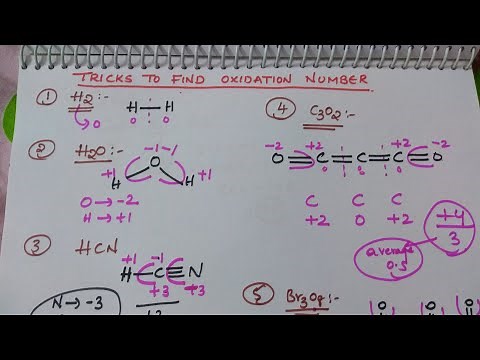 TRICKS TO FIND OXIDATION NUMBER
① H2:-
H—H
0 0
→ 0
② H2O:-
-1 -1
O
+1 H H +1
O → -2
H → +1
③ HCN
+1 -1
H—C≡N
+3 -3
N → -3
④ C3O2:-
-2 +2 +2 -2
O=C=C=C=O
0 0 0 0
C C C
+2 0 +2
+4
3
average
0.5
⑤ Br3O8:-
(O) (O) (O)